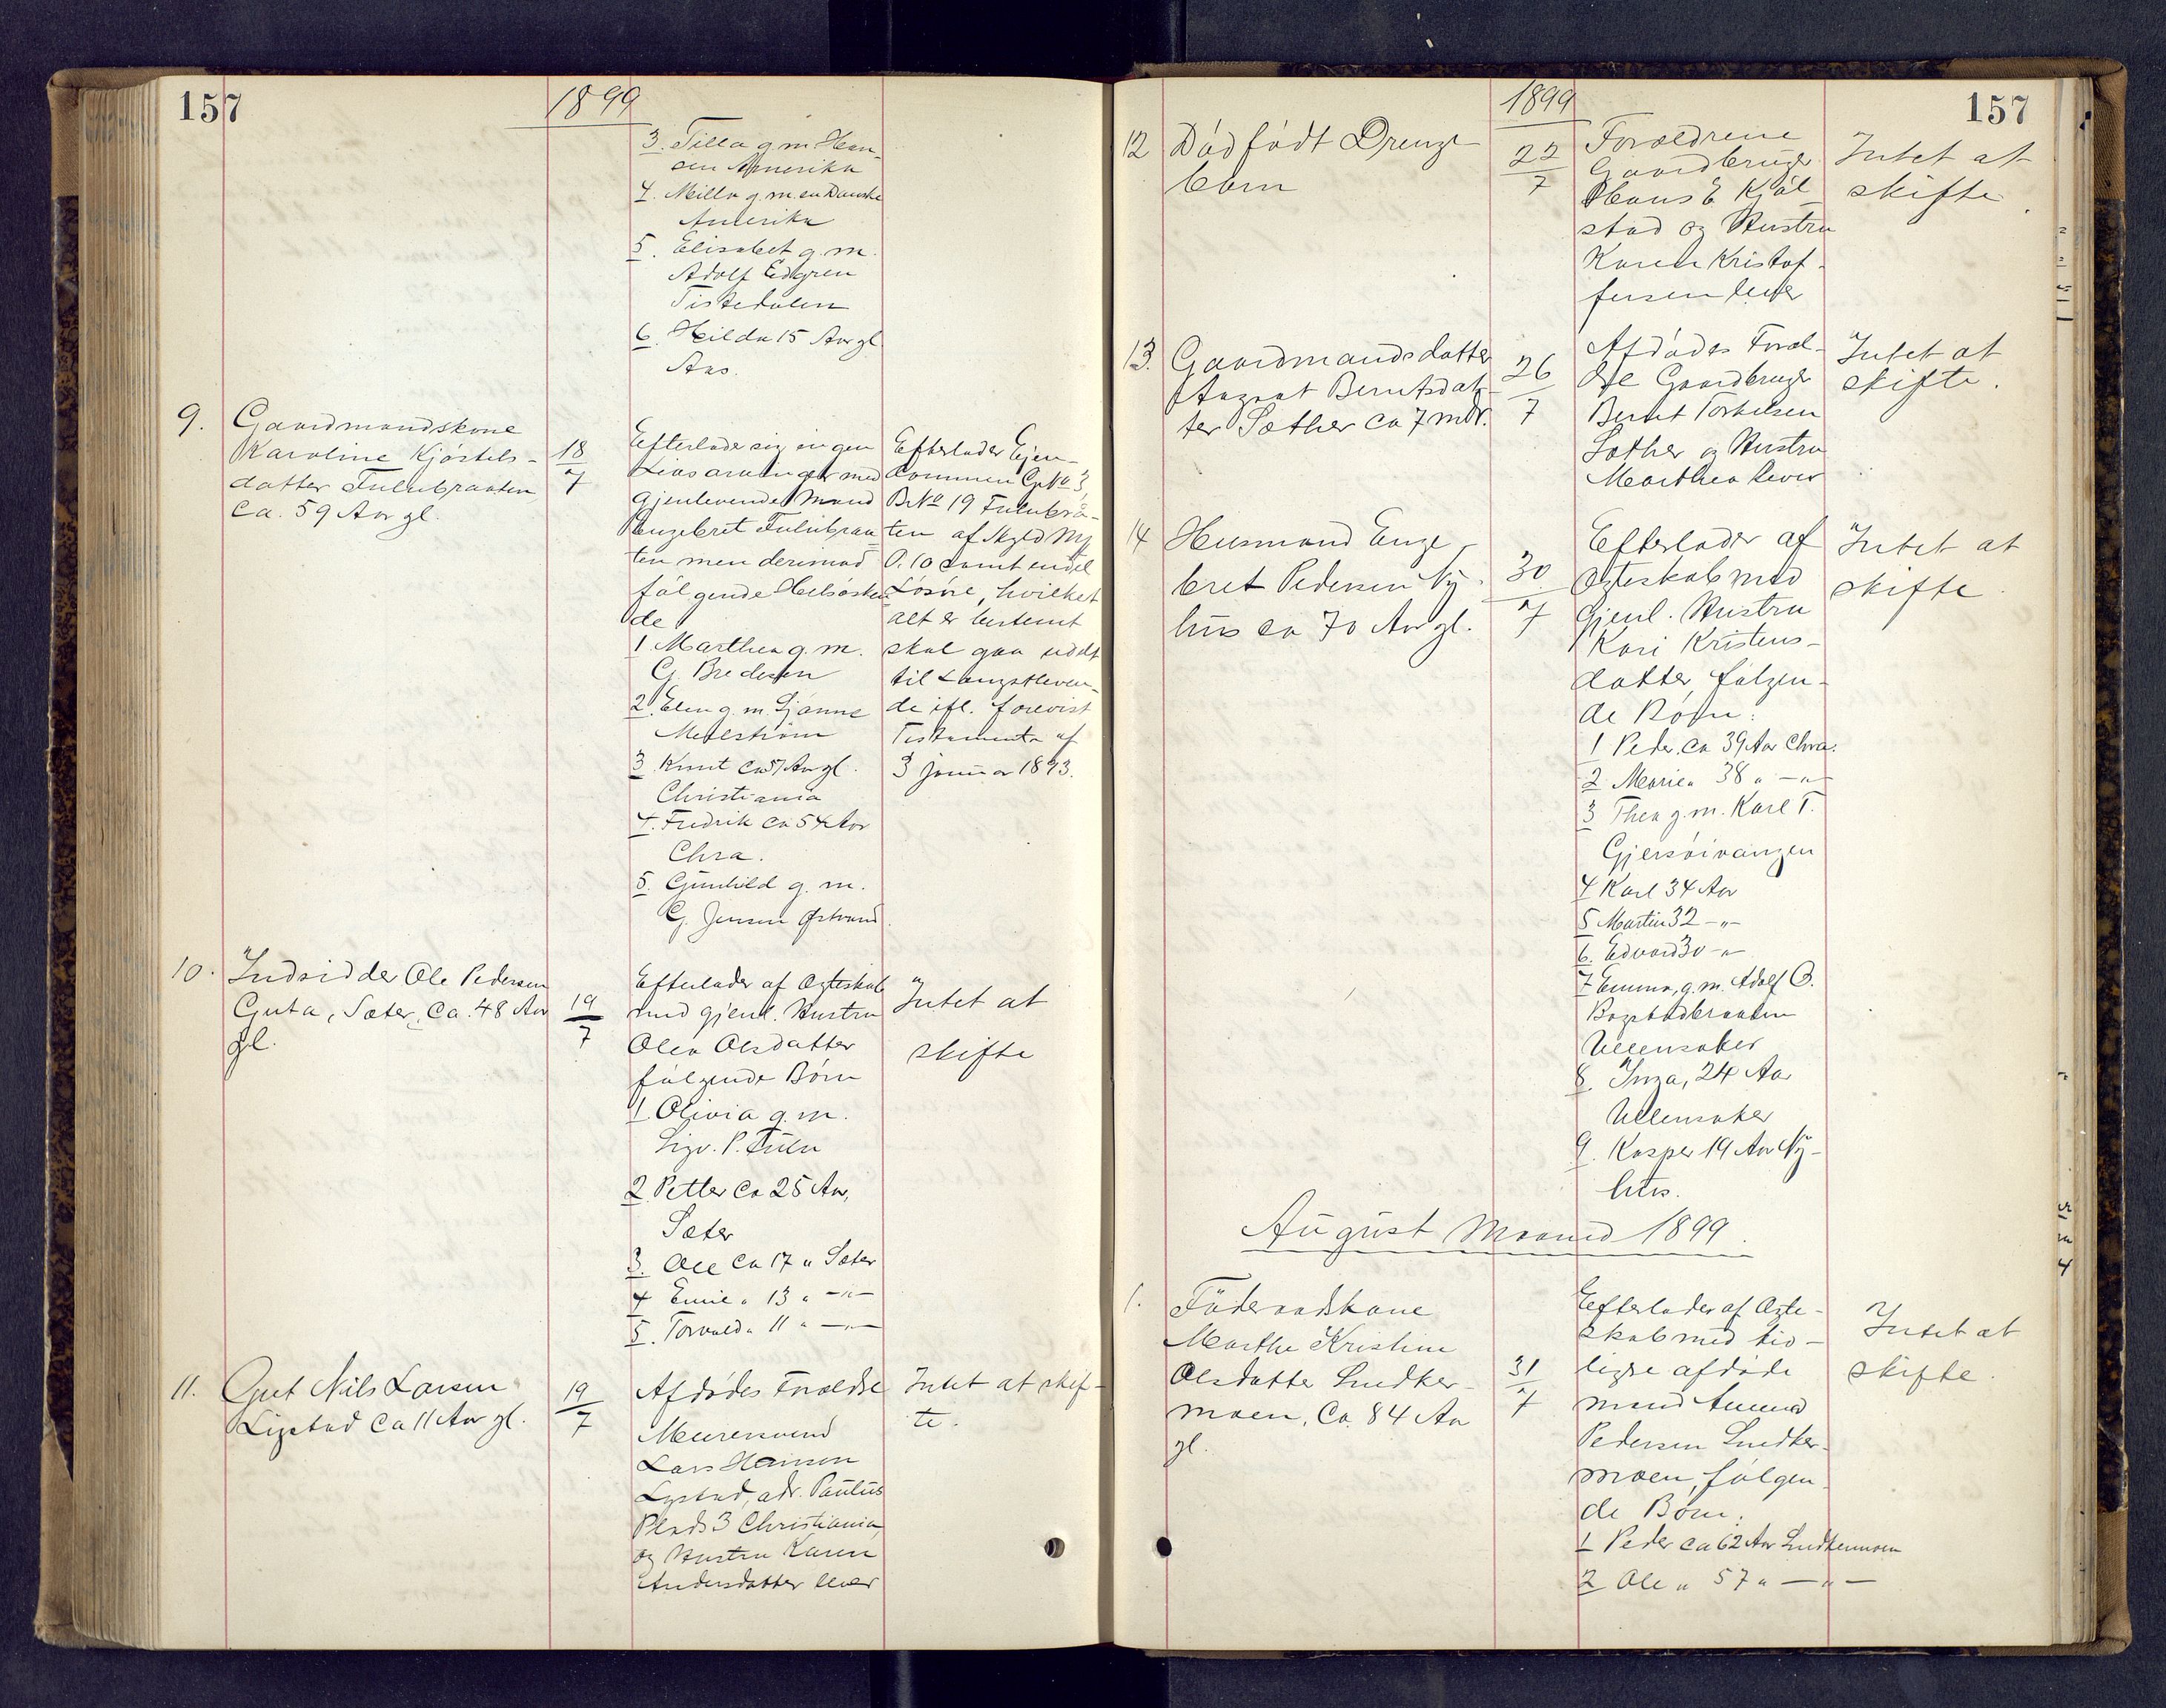 157
1899
3. Tilla g. m. Han-
sen Amerika
4. Milla g. m. en Danske
Amerika
5. Elisabet g. m.
Adolf Edgren
Tistedalen
6. Hilda 15 Aar gl
Aas.
9. Gaardmandskone
Karoline Kjóstels-
datter Fulubraaten
Ca. 59 Aar gl.
18/7
Efterlader sig ingen
Livsarvinger med
gjenlevende Mand
Engebret Fulubraa-
ten men derimod
fólgende Helsósken-
de
1 Marthea g. m.
G. Bredesen
2. Elen g. m.
3. Knut Ca 57 Aar gl.
Christiania
4. Fredrik Ca 54 Aar
Chra.
5. Gunhild g. m.
G. Jensen
Efterlader Ejen-
dommen G. No 3,
B. No 19 Fulubraa-
ten af Skyld My
0.10 samt endel
Lósóre, hvilket
alt er bestemt
skal gaa udelt
til Længstleven-
de ifl. forevist
Testamente af
3 Januar 1893.
10. Indsidder Ole Pedersen
Guta, Sæter, Ca. 48 Aar
gl.
19/7
Efterlader af Ægteskab
med gjenl. Hustru
Olea Olsdatter
fólgende Bórn
1 Olivia g. m.
Sigv. P. Fulu
2 Petter Ca 25 Aar,
Sæter
3. Ole Ca 17 " Sæter
4 Emil " 13 " —"—
5. Torvald " 11 " —"—
Intet at
skifte
11. Gut Nils Larsen
Ligstad Ca 11 Aar gl.
19/7
Afdódes Forældre
Murersvend
Lars Hansen
Lystad, adr. Paulus
Plads 3 Christiania,
og Hustru Karen
Andersdatter lever
Intet at skif-
te.
157
1899
12 Dódfódt Drenge-
barn
22/7
Forældrene
Gaardbruger
Hans E Kjól-
stad og Hustru
Karen Kristof-
fersen lever
Intet at
skifte.
13. Gaardmandsdatter
Aagaat Berntsdat-
ter Sæther Ca 7 mdr.
26/7
Afdódes Foræl-
dre Gaardbruger
Bernt Torkelsen
Sæther og Hustru
Marthea lever
Intet at
skifte.
14 Husmand Enge-
bret Pedersen Ny-
hus ca 70 Aar gl.
30/7
Efterlader af
Ægteskab med
Gjenl. Hustru
Kari Kristens-
datter, fólgen-
de Bórn:
1 Peder Ca 39 Aar Chra.
2 Marie " 38 " —"—
3 Thea g. m. Karl T.
Gjersóivangen
4 Karl 34 Aar
5 Martin 32 —"—
6. Edvard 30 —"—
7 Emma, g. m. Adolf O.
Bogstadbraaten
Ullensaker
8. Inga, 24 Aar
Ullensaker
9. Kasper 19 Aar Ny-
hus.
Intet at
skifte.
August Maaned 1899.
1. Fóderaadskone
Marthe Kristine
Olsdatter Snedker-
moen, Ca. 84 Aar
gl.
31/7
Eefterlader af Ægte-
skab med tid-
ligere afdóde
mand Amund
Pedersen Snedker-
moen, fólgen-
de Bórn:
1 Peder Ca 62 Aar Snedkermoen
2 Ole " 57 " —"—
Intet at
skifte.